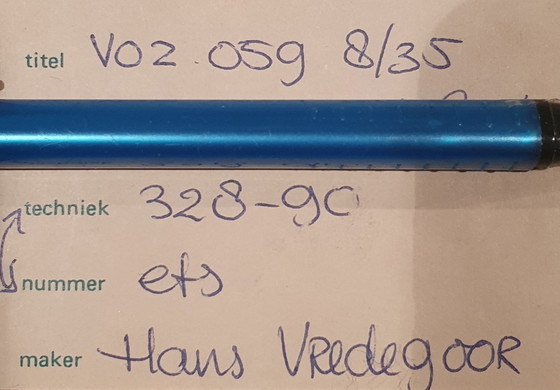 titel VOZ 059 8/35
techniek 328-90
nummer ets
maker Hans Vredegoor